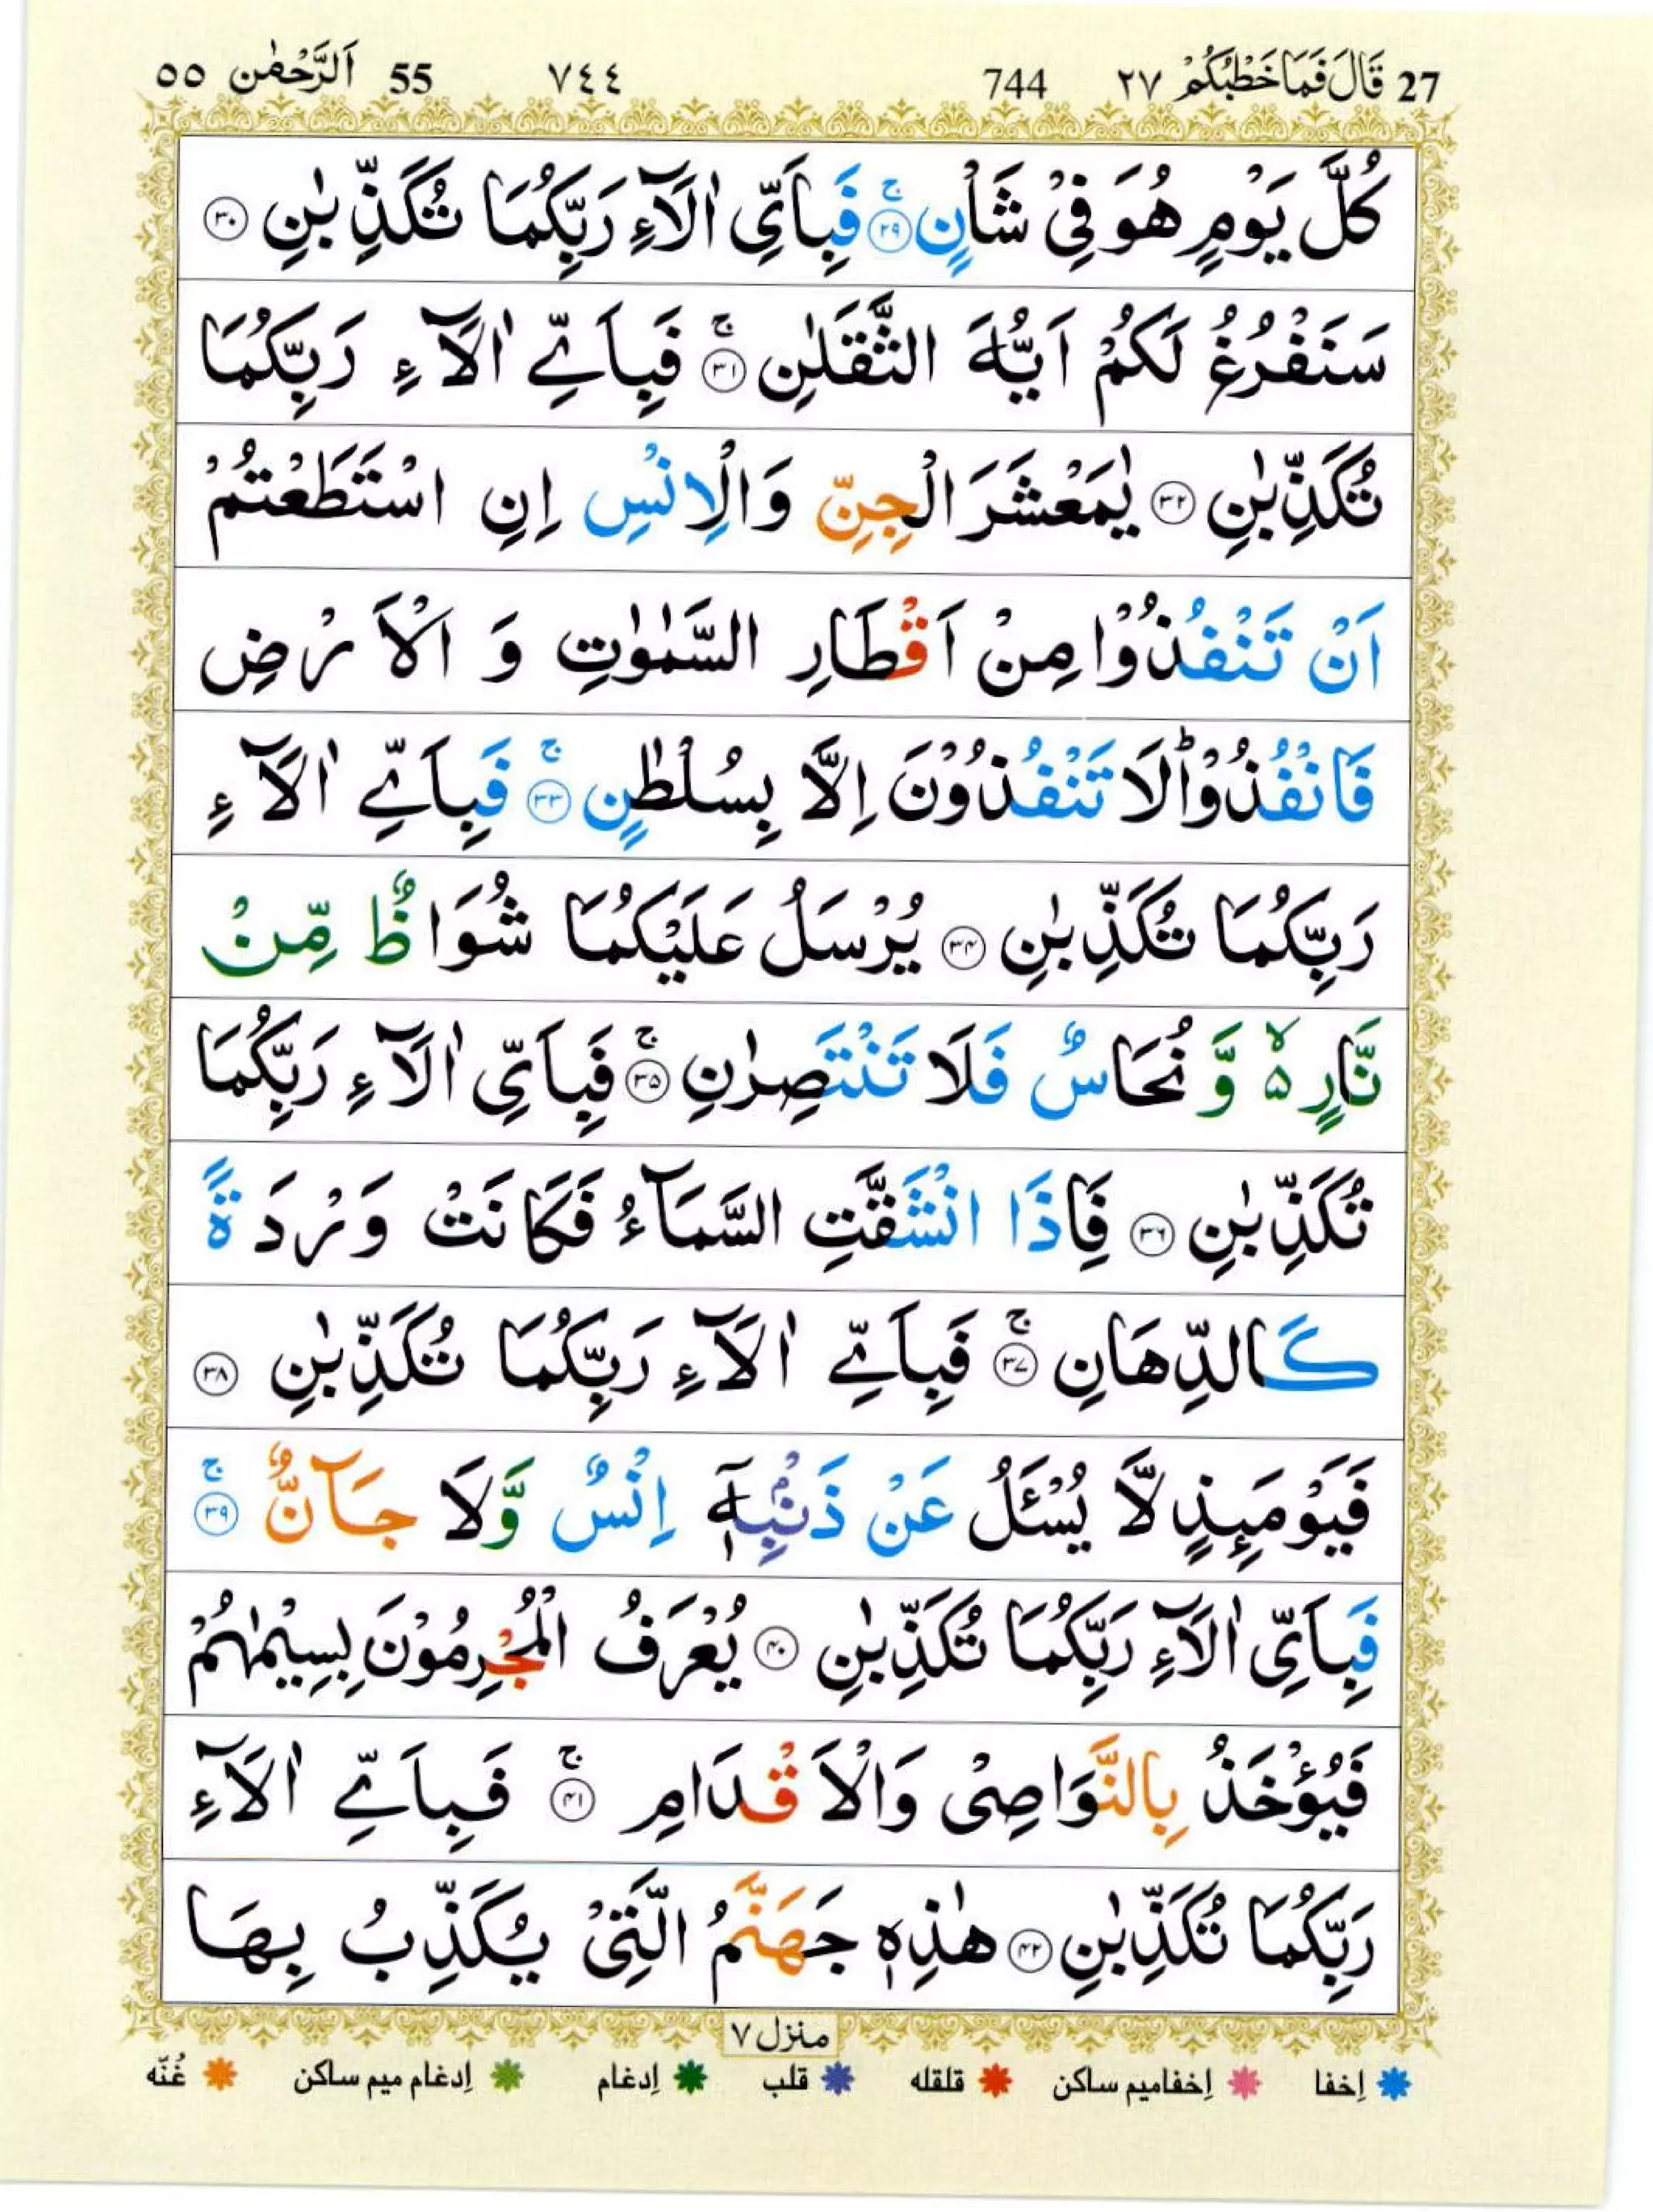 27 قَالَ فَمَا خَطْبُكُمْ ٢٧ 744 ٧٤٤ 55 اَلرَّحْمٰن ٥٥
كُلَّ يَوْمٍ هُوَ فِيْ شَاْنٍ ۚ﴿۲۹﴾ فَبِاَيِّ اٰلَآءِ رَبِّكُمَا تُكَذِّبٰنِ ﴿۳۰﴾
سَنَفْرُغُ لَكُمْ اَيُّهَ الثَّقَلٰنِ ۚ﴿۳۱﴾ فَبِاَيِّ اٰلَآءِ رَبِّكُمَا
تُكَذِّبٰنِ ﴿۳۲﴾ يٰمَعْشَرَ الْجِنِّ وَالْاِنْسِ اِنِ اسْتَطَعْتُمْ
اَنْ تَنْفُذُوْا مِنْ اَقْطَارِ السَّمٰوٰتِ وَ الْاَرْضِ
فَانْفُذُوْا ؕ لَا تَنْفُذُوْنَ اِلَّا بِسُلْطٰنٍ ۚ﴿۳۳﴾ فَبِاَيِّ اٰلَآءِ
رَبِّكُمَا تُكَذِّبٰنِ ﴿۳۴﴾ يُرْسَلُ عَلَيْكُمَا شُوَاظٌ مِّنْ
نَّارٍ ۵ۙ وَّ نُحَاسٌ فَلَا تَنْتَصِرٰنِ ۚ﴿۳۵﴾ فَبِاَيِّ اٰلَآءِ رَبِّكُمَا
تُكَذِّبٰنِ ﴿۳۶﴾ فَاِذَا انْشَقَّتِ السَّمَآءُ فَكَانَتْ وَرْدَةً
كَالدِّهَانِ ۚ﴿۳۷﴾ فَبِاَيِّ اٰلَآءِ رَبِّكُمَا تُكَذِّبٰنِ ﴿۳۸﴾
فَيَوْمَئِذٍ لَّا يُسْئَلُ عَنْ ذَنْۢبِهٖۤ اِنْسٌ وَّلَا جَآنٌّ ۚ﴿۳۹﴾
فَبِاَيِّ اٰلَآءِ رَبِّكُمَا تُكَذِّبٰنِ ﴿۴۰﴾ يُعْرَفُ الْمُجْرِمُوْنَ بِسِيْمٰهُمْ
فَيُؤْخَذُ بِالنَّوَاصِيْ وَالْاَقْدَامِ ۚ﴿۴۱﴾ فَبِاَيِّ اٰلَآءِ
رَبِّكُمَا تُكَذِّبٰنِ ﴿۴۲﴾ هٰذِهٖ جَهَنَّمُ الَّتِيْ يُكَذِّبُ بِهَا
منزل ۷
اِخفا اِخفامیم ساکن قلقله قلب اِدغام اِدغام میم ساکن غُنّه